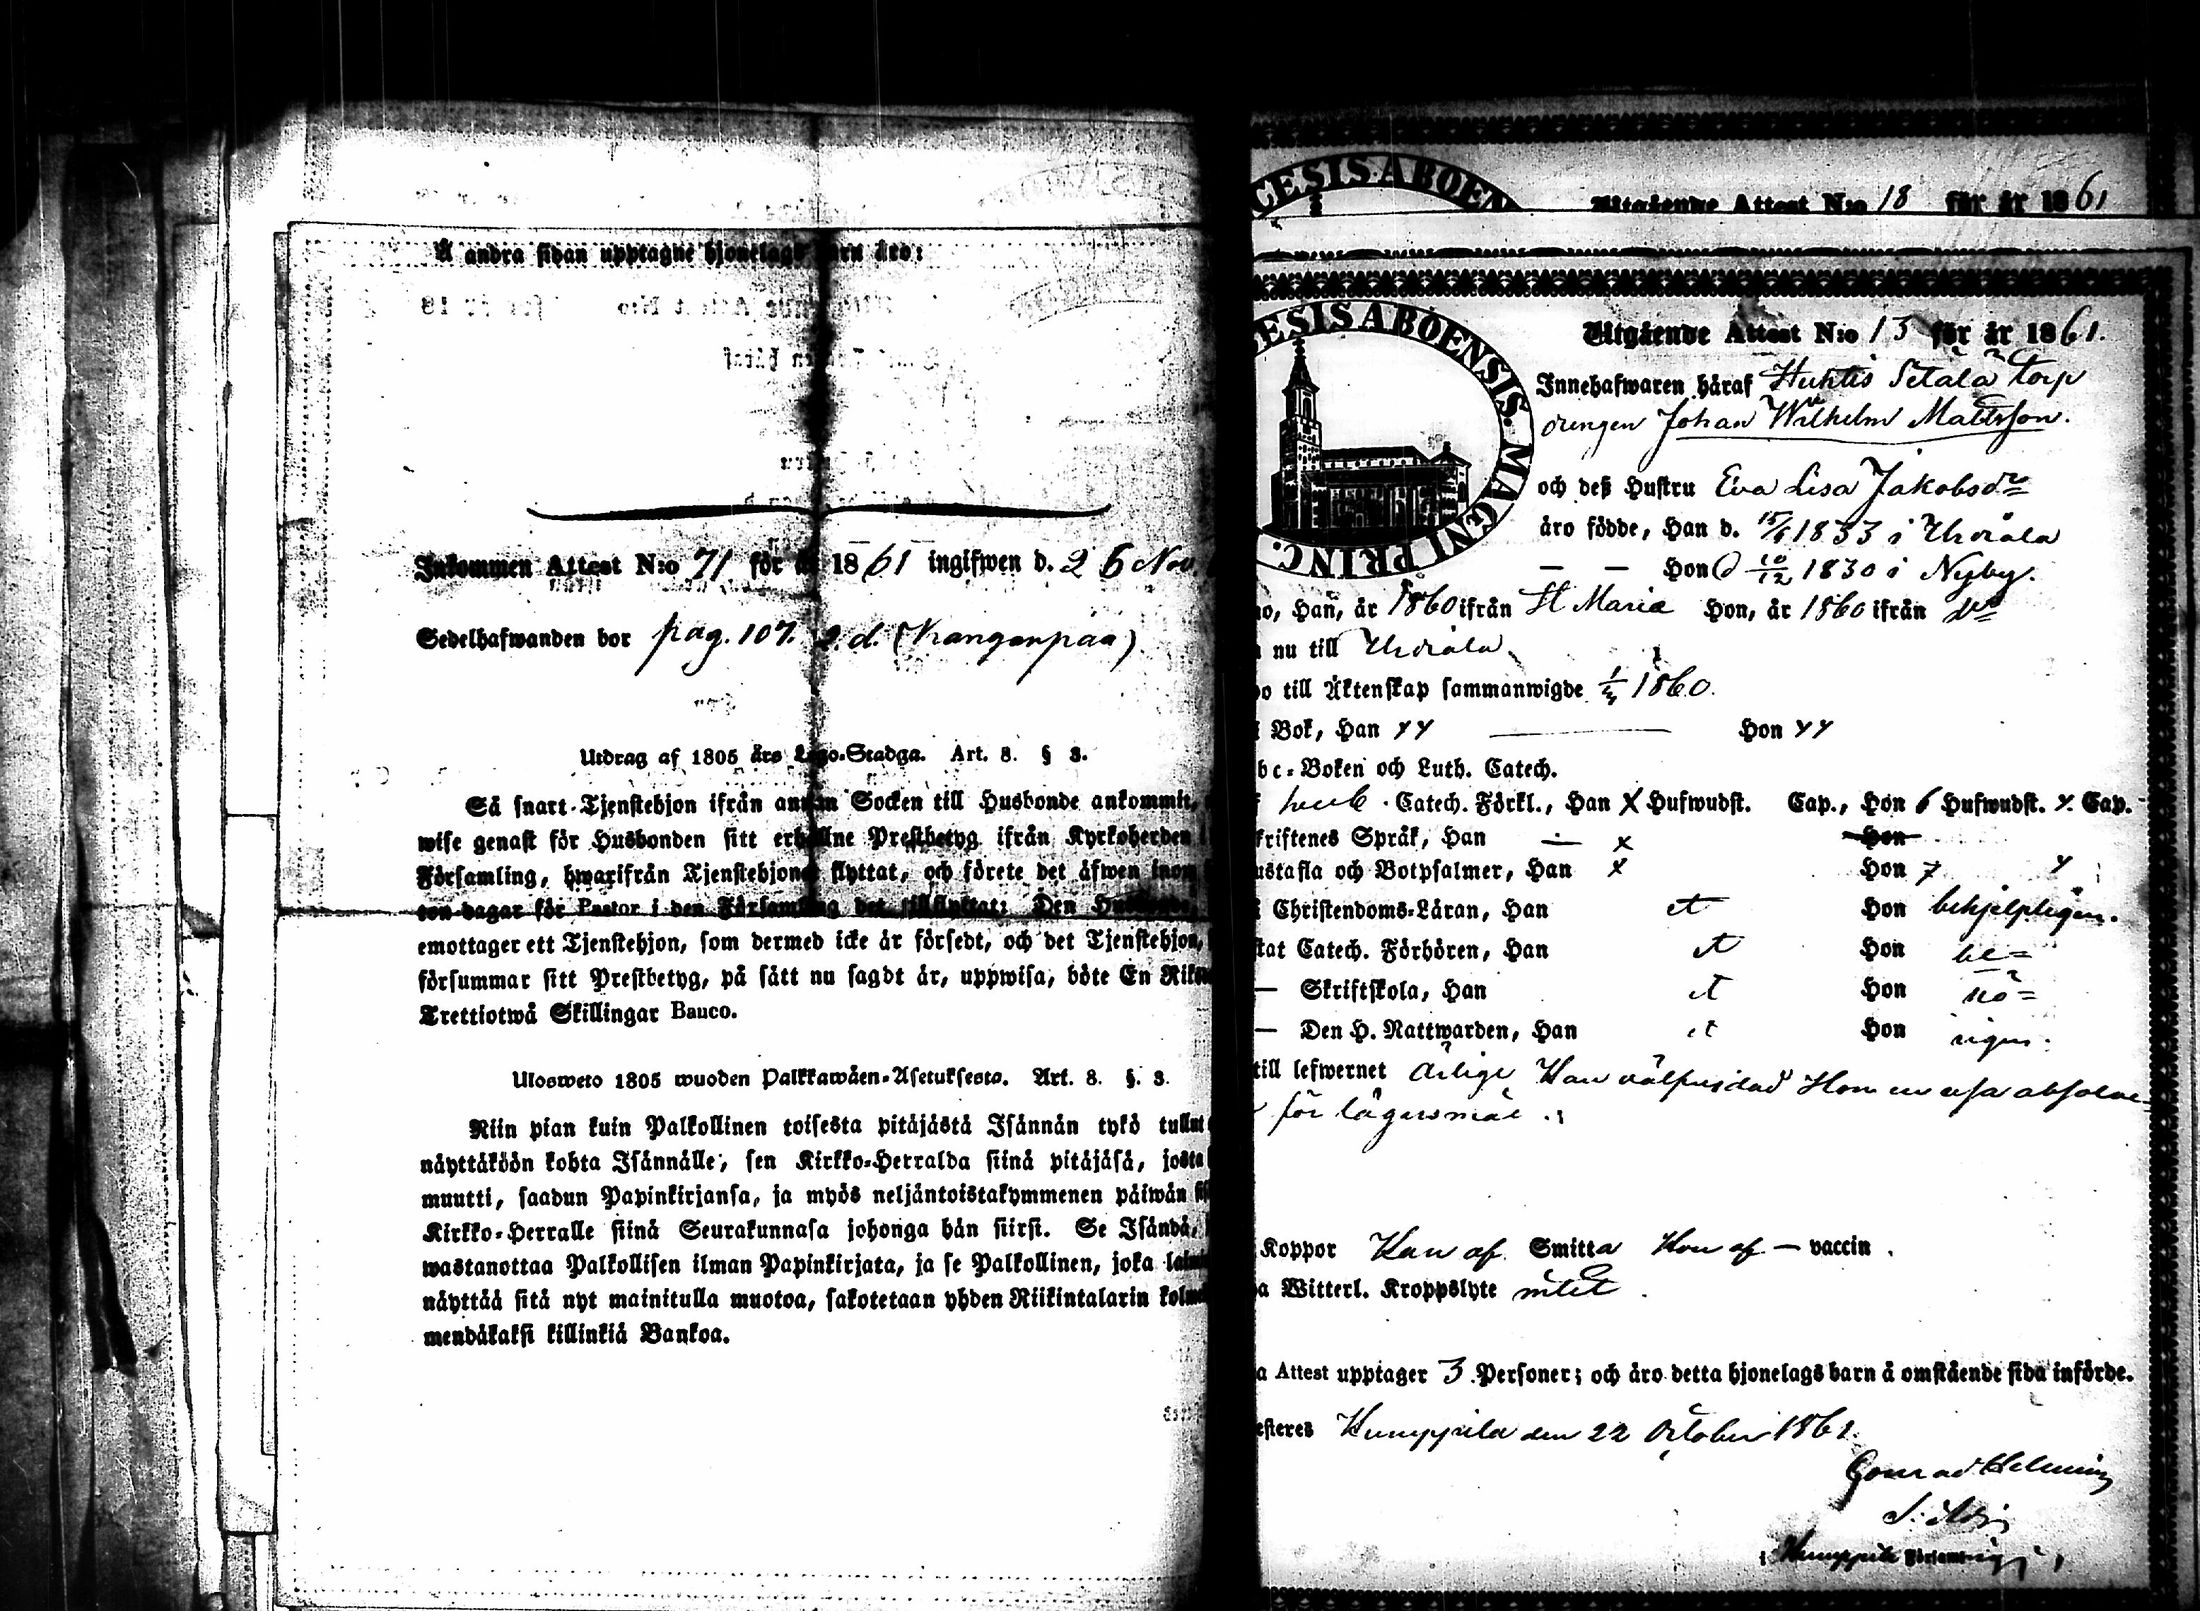 Å andra sidan upptagne hjonelags barn äro:
Inkommen Attest N:o 71 för år 1861 ingifwen d. 26 Nov.
Sedelhafwanden bor pag. 107. 2. d. (Kanganpää)
Utdrag af 1805 års Lego-Stadga. Art. 8. § 3.
Så snart Tjenstehjon ifrån annan Socken till Husbonde ankommit,
wise genast för Husbonden sitt erhållne Prestbetyg ifrån Kyrkoherden
Församling, hwarifrån Tjenstehjonet flyttat, och förete det äfwen inom
ton dagar för Pastor i den Församling det tillflyttat: Den Husbonde,
emottager ett Tjenstehjon, som dermed icke är försedt, och det Tjenstehjon,
försummar sitt Prestbetyg, på sätt nu sagdt är, uppwisa, böte En Riks
Trettiotwå Skillingar Banco.
Ulosweto 1805 wuoden Palkkawäen-Asetuksesta. Art. 8. §. 3.
Niin pian kuin Palkollinen toisesta pitäjästä Isännän tykö tullut
näyttäköön kohta Isännälle, sen Kirkko-Herralda siinä pitäjäsä, josta
muutti, saadun Papinkirjansa, ja myös neljäntoistakymmenen päiwän
Kirkko-Herralle siinä Seurakunnasa johonga hän siirsi. Se Isändä,
wastanottaa Palkollisen ilman Papinkirjata, ja se Palkollinen, joka
näyttää sitä nyt mainitulla muotoa, sakotetaan yhden Riikintalarin kolme
mendäkaksi killinkiä Bankoa.
CESIS ABOEN
Utgående Attest N:o 18 för år 1861
ESIS ABOENSIS. MAGNI PRINC.
Utgående Attest N:o 13 för år 1861.
Innehafwaren häraf Huhtis Setälä torp
drengen Johan Wilhelm Mattsson.
och deß Hustru Eva Lisa Jakobsdr
äro födde, Han d. 1833 i Urdiala
— — Hon d 10/12 1830 i Nyby.
no, Han, år 1860 ifrån St Marie Hon, år 1860 ifrån do
nu till Urdiala
till Äktenskap sammanwigde 1860.
Bok, Han Hon
bc-Boken och Luth. Catech.
Catech. Förkl., Han x Hufwudst. Cap., Hon 6 Hufwudst. Cap.
kriftenes Språk, Han — x Hon
ustafla och Botpsalmer, Han x Hon
Christendoms-Läran, Han et Hon behjelpligen.
stat Catech. Förhören, Han et Hon be=
— Skriftskola, Han et Hon hö=
— Den H. Nattwarden, Han et Hon rigen.
till lefwernet ärlige Han välfrejdad Hon en resa absolve-
för lägersmål.
Koppor Han af Smitta Hon af — vaccin.
a Witterl. Kroppslyte intet.
a Attest upptager 3 Personer; och äro detta hjonelags barn å omstående sida införde.
esteres Humppila den 22 October 1861.
Conrad Helming
i Humppila Församling